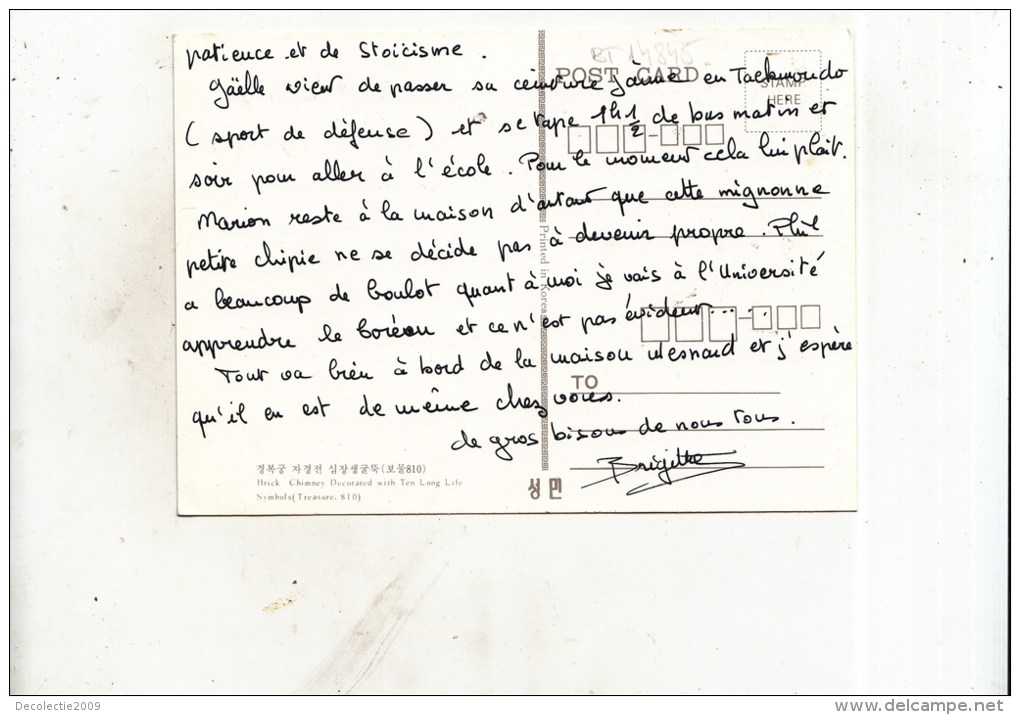 patience et de Stoïcisme.
Gaëlle vient de passer sa ceinture jaune en Taekwondo
( sport de défense ) et se tape 1h 1/2 de bus matin et
soir pour aller à l'école. Pour le moment cela lui plait.
Marion reste à la maison d'autant que cette mignonne
petite chipie ne se décide pas à devenir propre. Phil
a beaucoup de boulot quant à moi je vais à l'Université
apprendre le Coréen et ce n'est pas évident.....
Tout va bien à bord de la maison Mesnard et j'espère
qu'il en est de même chez vous.
de gros bisous de nous tous.
Brigitte
BT 14845
POST CARD
STAMP
HERE
Printed in Korea
TO
경복궁 자경전 십장생굴뚝(보물810)
Brick Chimney Decorated with Ten Long Life
Symbols(Treasure. 810)
성민
Decolectie2009
www.delcampe.net